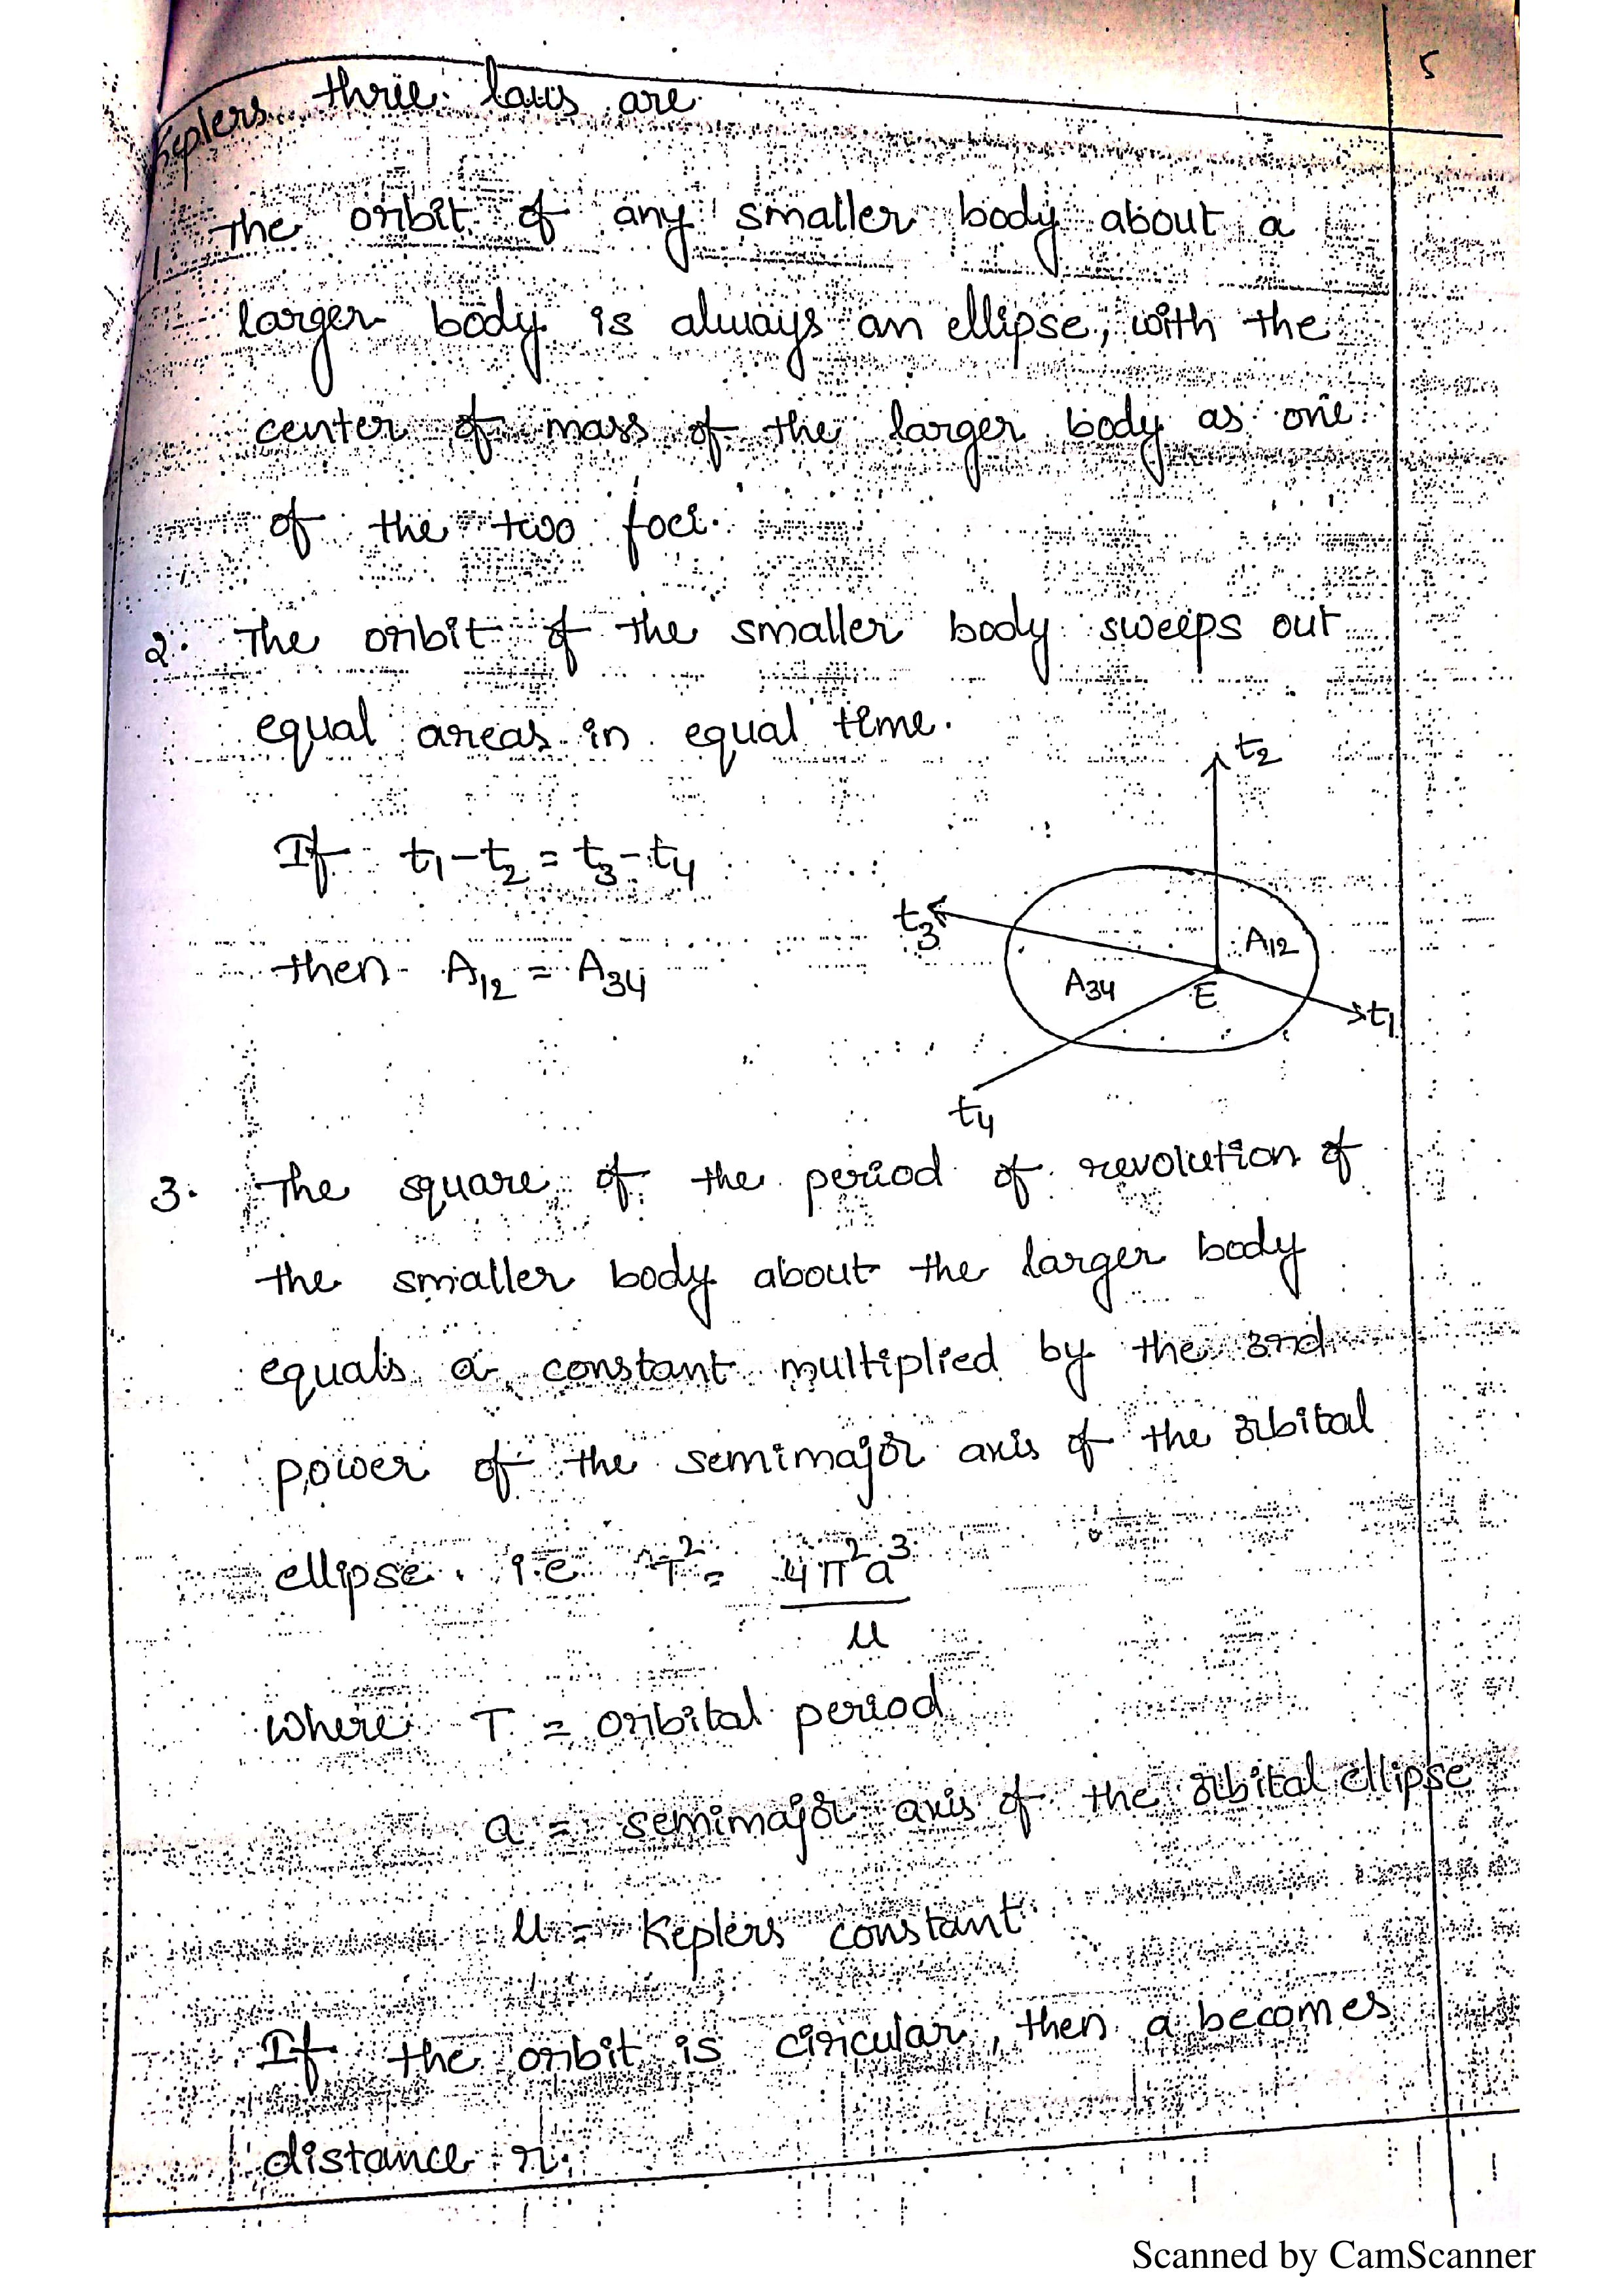 5
Keplers three laws are
1. The orbit of any smaller body about a
larger body is always an ellipse, with the
center of mass of the larger body as one
of the two foci.
2. The orbit of the smaller body sweeps out
equal areas in equal time.
t2
If t1-t2 = t3-t4
t3 A12
then A12 = A34
A34 E t1
t4
3. The square of the period of revolution of
the smaller body about the larger body
equals a constant multiplied by the 3rd
power of the semimajor axis of the orbital
ellipse. i.e T² = 4π²a³
μ
where T = orbital period
a = semimajor axis of the orbital ellipse
μ = Keplers constant
If the orbit is circular, then a becomes
distance r.
Scanned by CamScanner